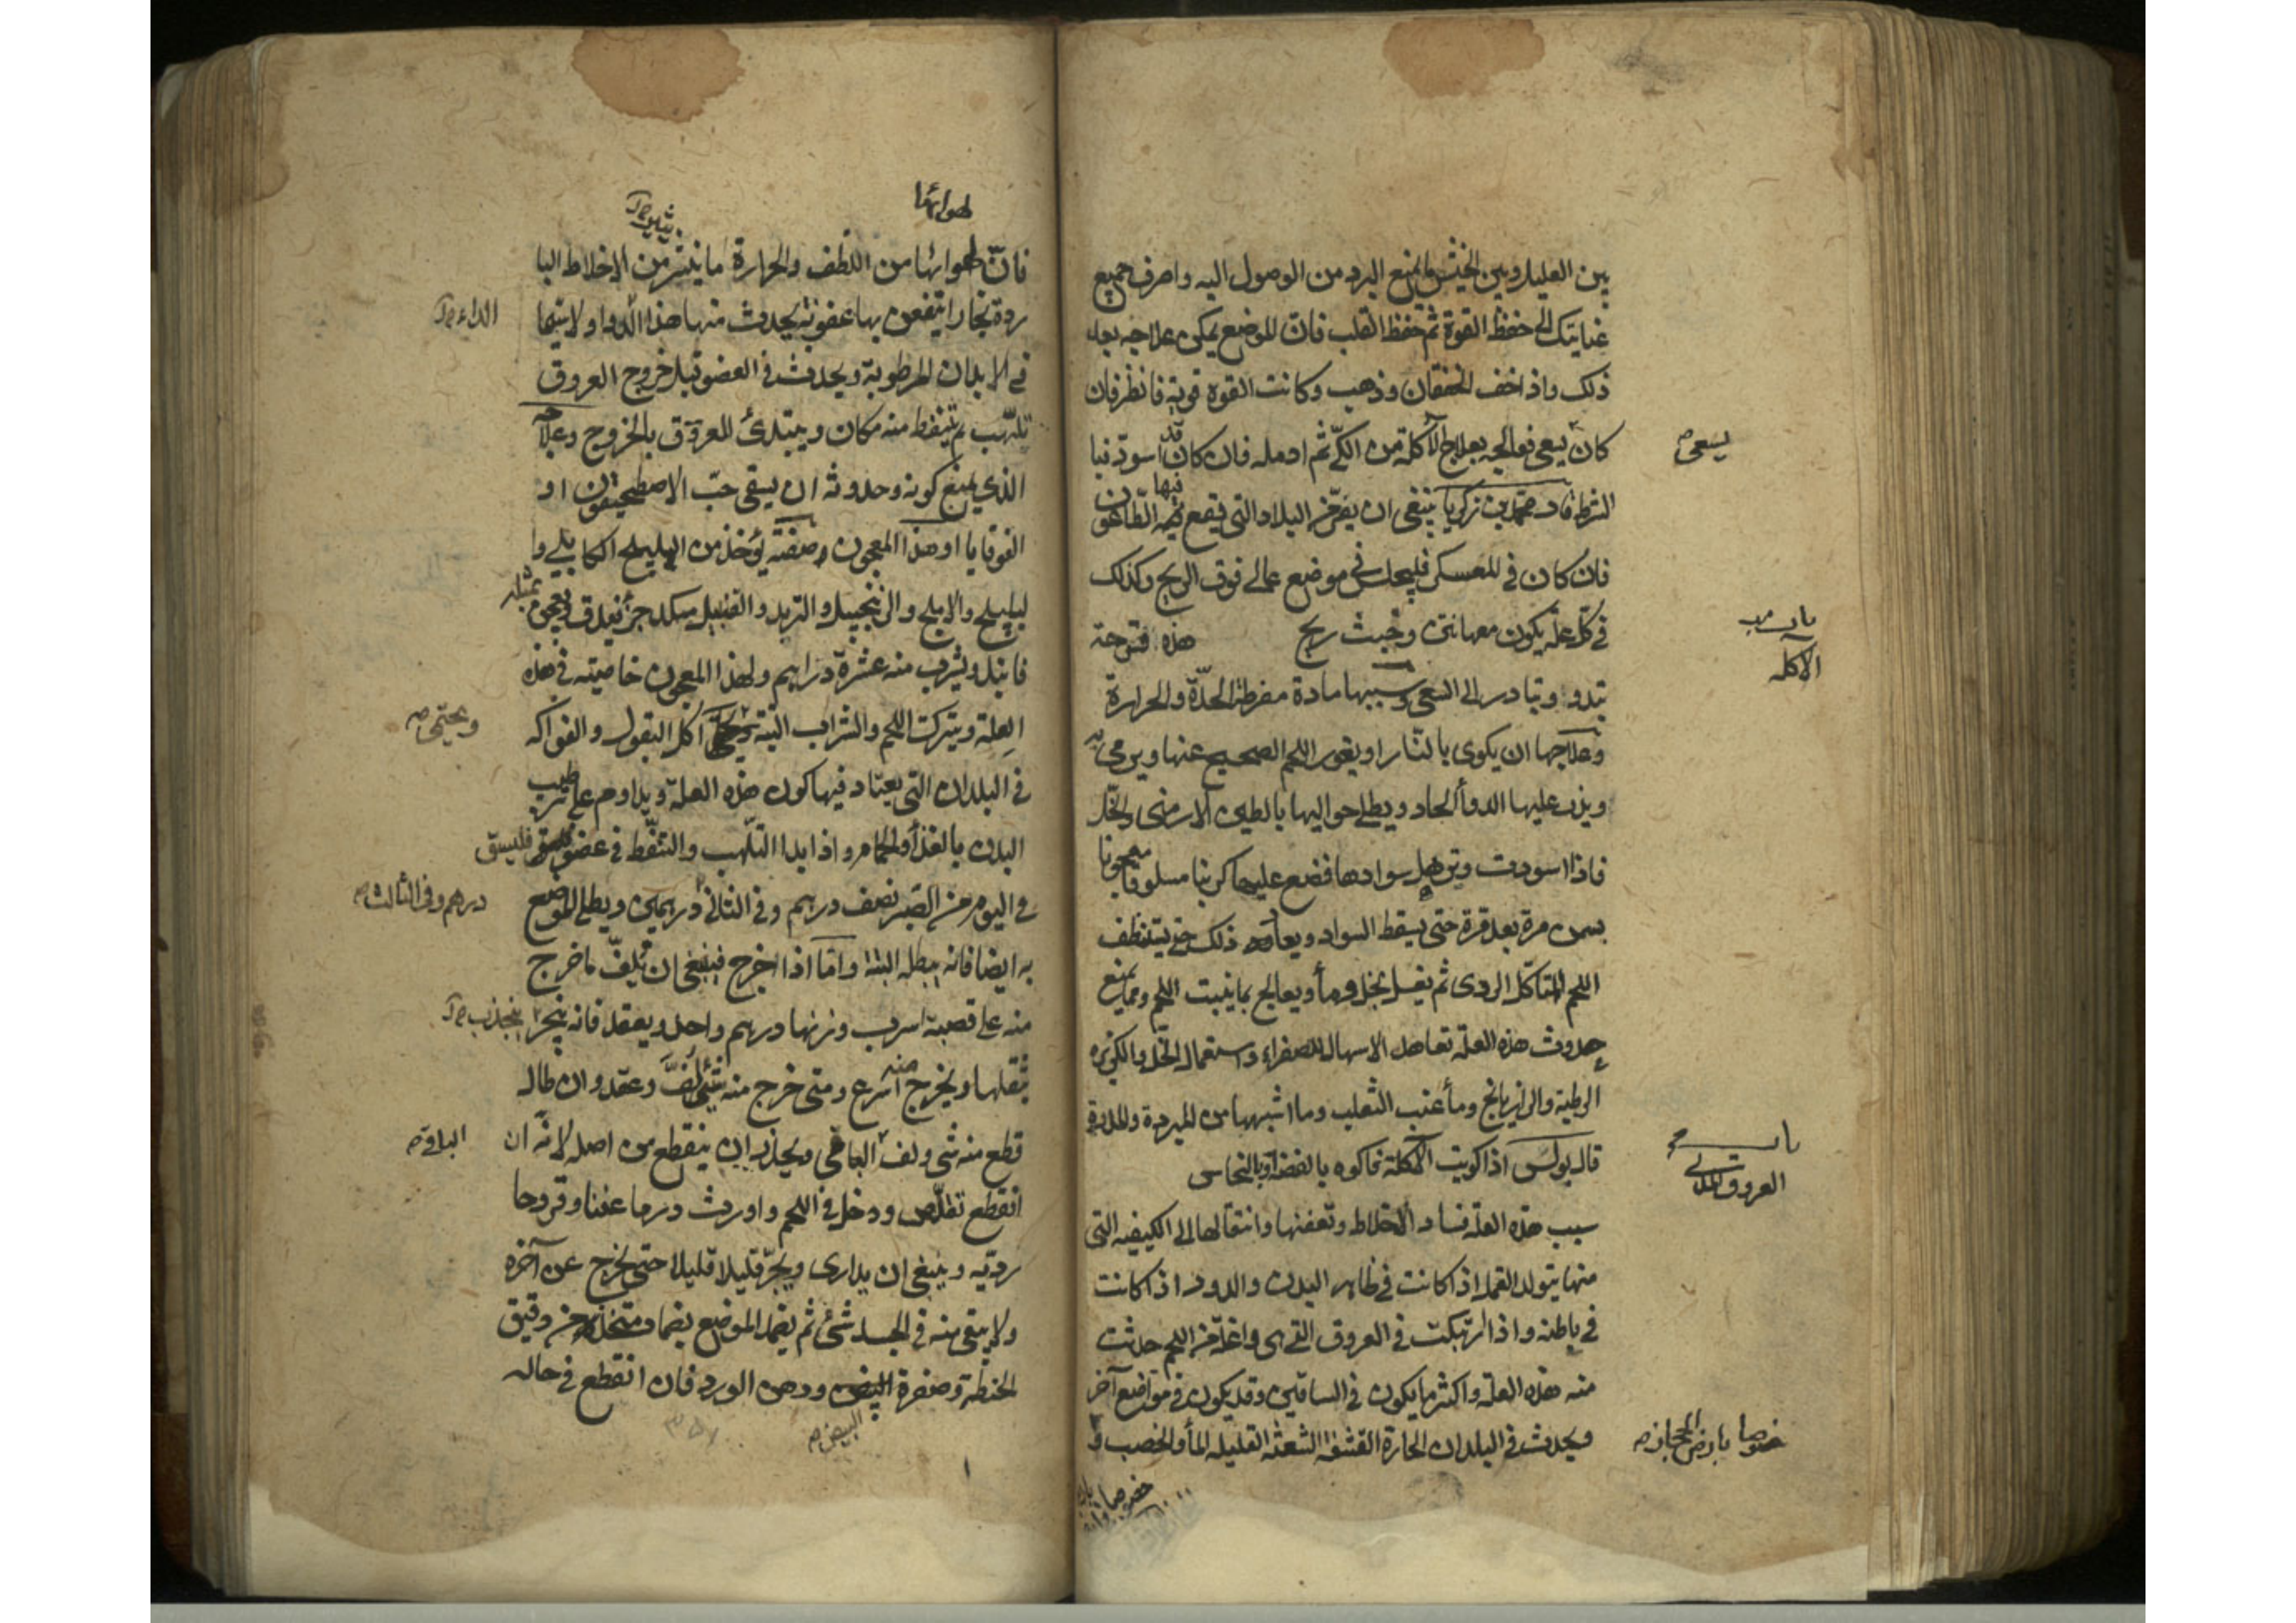 بين العليل وبين الخيش وامنع البرد من الوصول اليه واصرف جميع
عنايتك الى حفظ القوة ثم حفظ القلب فان الموضع يمكن علاجه بعد
ذلك واذا خف الخفقان وذهب وكانت القوة قوية فانظر فان
كان يسعى فعالجه بعلاج الآكلة من الكيّ ثم ادمله فان كان قد اسودّ
يسعى
الشرط قال محمد بن زكريا ينبغي ان يفرّ من البلاد التي يقع فيها الطاعون
فان كان في المعسكر فليجلس في موضع عالي فوق الريح وكذلك
في كلّ علة يكون معها نتن وخبث ريح هذه قتوحة
باب
الآكله
تبدو وتبادر الى السعي وسببها مادة مفرطة الحدّة والحرارة
وعلاجها ان يكوى بالنّار او يقور اللحم الصحيح عنها ويرمى به
ويذر عليها الدوأ الحاد ويطلى حواليها بالطين الارمني والخلّ
فاذا اسودت وترهل سوادها فضع عليها كرنبا مسلوقا معجونا
بسمن مرة بعد مرة حتى يسقط السواد ويعاود ذلك حتى يستنظف
اللحم المتأكل الردي ثم يغسل بخل ومأ ويعالج بما ينبت اللحم ومما يمنع
حدوث هذه العلة تعاهد الاسهال للصفراء واستعمال الخل والكزبره
الرطبة والزيرباج ومأ عنب الثعلب وما اشبهها من المبردة
قال بولس اذا كويت الآكلة فاكوه بالفضة او بالنحاس
باب
العروق المدني
سبب هذه العلة فساد الاخلاط وتعفنها وانتقالها الى الكيفيه التي
منها يتولد القمل اذا كانت في ظاهر البدن والدود اذا كانت
في باطنه واذا ارتبكت في العروق التي هي واغلة في اللحم حدثت
منه هذه العلة واكثر ما يكون في الساقين وقد يكون في مواضع آخر
ويحدث في البلدان الحارة القشفة الشعثة القليله المأ والخصب و
خصوصا بارض الحجاز
لهوائها
فانّ لهوائها من اللطف والحرارة ما يثير من الاخلاط البا
يثير
ردة بخارا يتعفن بها عفونة يحدث منها هذا الدوا ولا سيما
الداء
في الابدان المرطوبة ويحدث في العضو قبل خروج العروق
تلهّب ثم يتنفط منه مكان ويبتدئ العروق بالخروج وعلاجه
الذي يمنع كونه وحدوثه ان يسقى حبّ الاصطمحيقون او
القوقايا او هذا المعجون وصفته يؤخذ من الهليلج الكابلي وا
لبليلج والاملج والزنجبيل والتربد والقنبيل من كل جزء يدق ويعجن بمثله
فانيذ ويشرب منه عشرة دراهم ولهذا المعجون خاصيته في هذه
العلة ويترك اللحم والشراب البتة ويحتمي اكل البقول والفواكه
ويحتمى
في البلدان التي يعتاد فيها كون هذه العلة ويداوم على ترطيب
البدن بالغذأ والحمام واذا بدا التلهب والتنفّط في عضو فليسق
في اليوم من الصبر نصف درهم وفي الثاني درهمين ويطلى الموضع
درهم وفي الثالث
به ايضا فانه يبطله البتة وامّا اذا خرج فينبغي ان يلفّ ما خرج
منه على قصبة اسرب وزنها درهم واحد ويعقد فانه ينجر
ينجذب
بثقلها ويخرج منه اسرع ومتى خرج منه شئ لفّ وعقد وان طال
قطع منه شي ولف الباقي ويحذر ان ينقطع من اصله لانه ان
الباقي
انقطع تقلّص ودخل في اللحم واورث ورما عفنا وقروحا
رديه وينبغي ان يدارى ويجرّ قليلا قليلا حتى يخرج عن آخره
ولا يبقى منه في الجسد شئ ثم يضمد الموضع بضماد متخذ من دقيق
الحنطة وصفرة البيض ودهن الورد فان انقطع في حاله
البيض